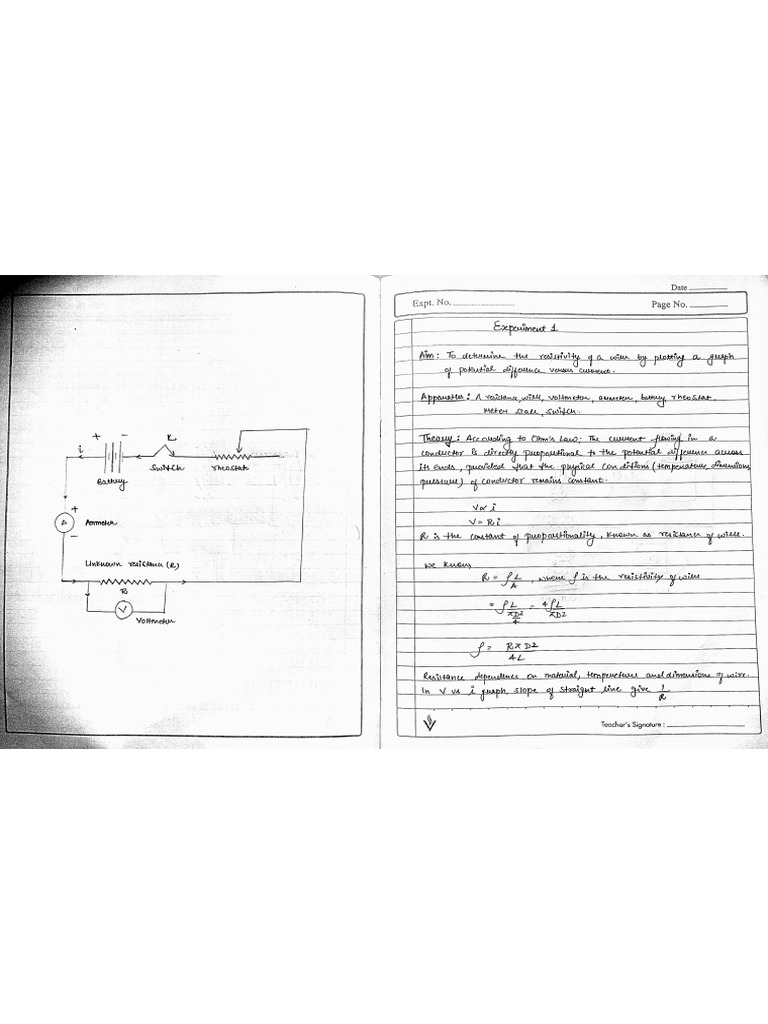 + −
i
K
Battery
Switch
rheostat
+
A
Ammeter
−
Unknown resistance (R)
R
V
Voltmeter
Date
Expt. No.
Page No.
Experiment 1
Aim : To determine the resistivity of a wire by plotting a graph
of potential difference versus current.
Apparatus : A resistance, wire, voltmeter, ammeter, battery, rheostat,
meter scale, switch.
Theory : According to Ohm's Law : The current flowing in a
conductor is directly propotional to the potential difference across
its ends, provided that the physical conditions (temperature, dimensions,
pressure) of conductor remains constant.
V ∝ i
V = Ri
R is the constant of propotionality, known as resistance of wire.
We know,
R = ρL/A , where ρ is the resistivity of wire
= ρL/(πD2/4) = 4ρL/πD2
ρ = RπD2/4L
Resistance dependence on material, temperature and dimensions of wire.
In V vs i graph, slope of straight line give 1/R
Teacher's Signature :